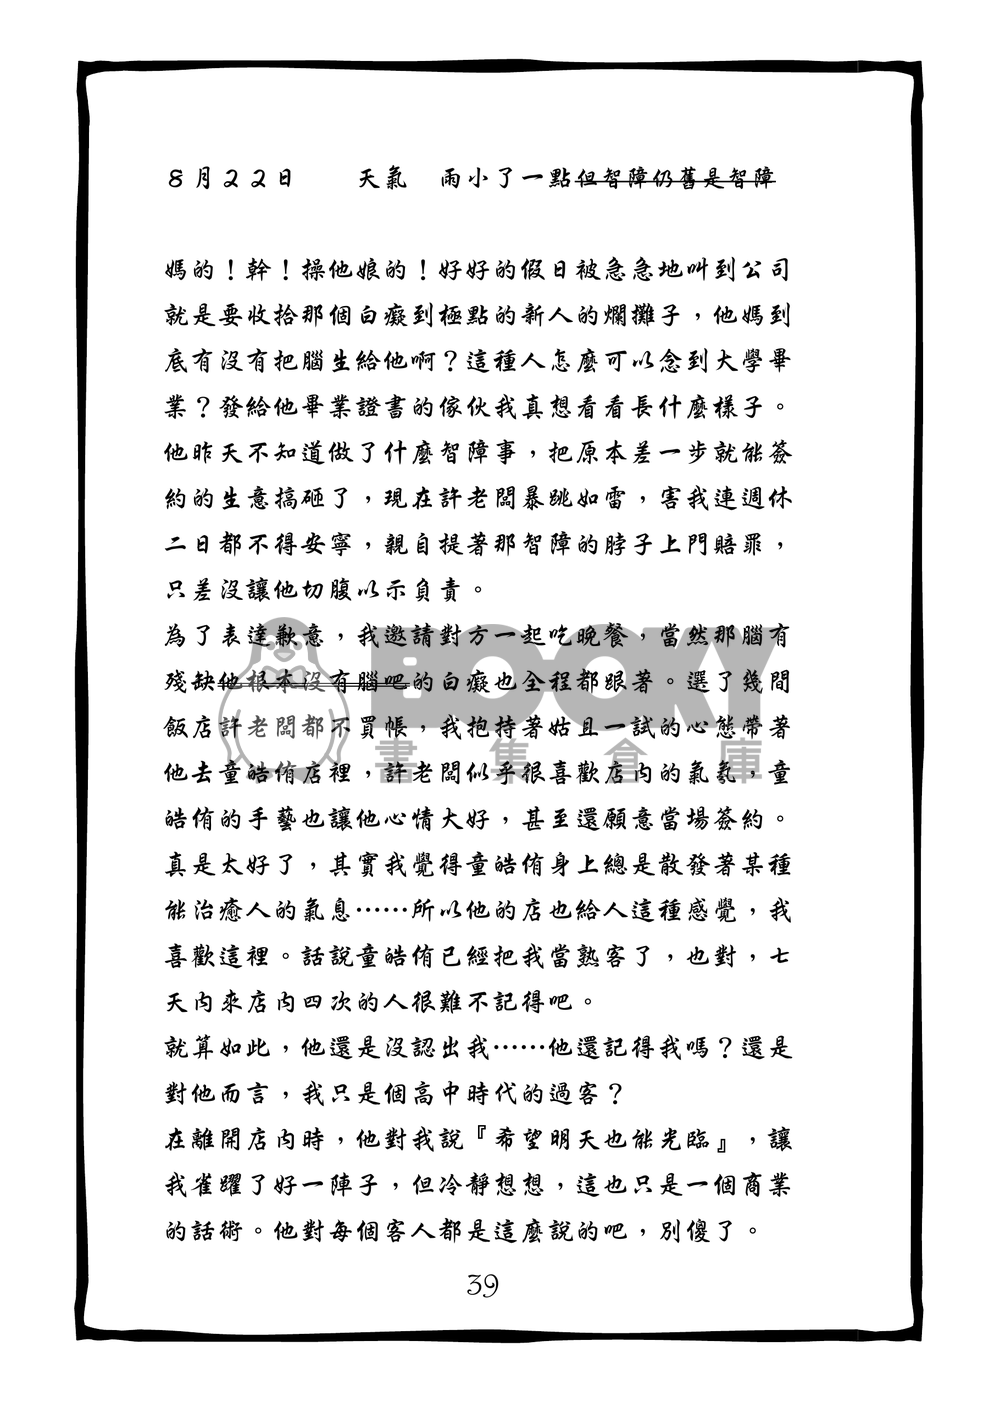 8月22日　　天氣　雨小了一點但智障仍舊是智障
媽的！幹！操他娘的！好好的假日被急急地叫到公司
就是要收拾那個白癡到極點的新人的爛攤子，他媽到
底有沒有把腦生給他啊？這種人怎麼可以念到大學畢
業？發給他畢業證書的傢伙我真想看看長什麼樣子。
他昨天不知道做了什麼智障事，把原本差一步就能簽
約的生意搞砸了，現在許老闆暴跳如雷，害我連週休
二日都不得安寧，親自提著那智障的脖子上門賠罪，
只差沒讓他切腹以示負責。
為了表達歉意，我邀請對方一起吃晚餐，當然那腦有
殘缺他根本沒有腦吧的白癡也全程都跟著。選了幾間
飯店許老闆都不買帳，我抱持著姑且一試的心態帶著
他去童皓侑店裡，許老闆似乎很喜歡店內的氣氛，童
皓侑的手藝也讓他心情大好，甚至還願意當場簽約。
真是太好了，其實我覺得童皓侑身上總是散發著某種
能治癒人的氣息……所以他的店也給人這種感覺，我
喜歡這裡。話說童皓侑已經把我當熟客了，也對，七
天內來店內四次的人很難不記得吧。
就算如此，他還是沒認出我……他還記得我嗎？還是
對他而言，我只是個高中時代的過客？
在離開店內時，他對我說『希望明天也能光臨』，讓
我雀躍了好一陣子，但冷靜想想，這也只是一個商業
的話術。他對每個客人都是這麼說的吧，別傻了。
39
BOOKY
書集倉庫